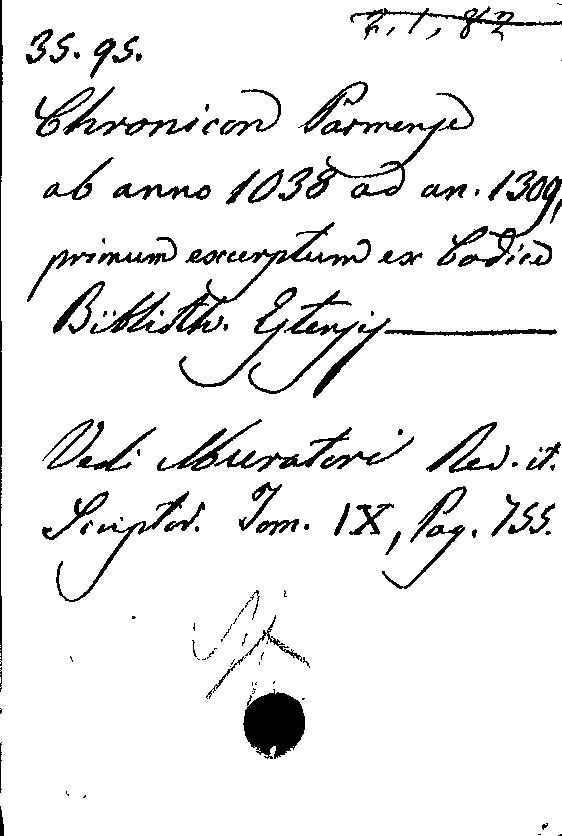 2, 1, 82
35. 95.
Chronicon Parmense
ab anno 1038 ad an. 1309,
primum excerptum ex Codice
Biblioth. Estensis
Vedi Muratori Rer. it.
Scriptor. Tom. IX, Pag. 755.